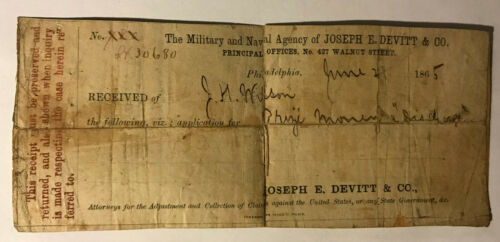 This receipt must be preserved and
returned, and also shown when inquiry
is made respecting the case herein re-
ferred to.
No. XXX The Military and Naval Agency of JOSEPH E. DEVITT & CO.
30680 PRINCIPAL OFFICES, No. 427 WALNUT STREET.
Philadelphia, June 2 1865
RECEIVED of J. H. Wilson
the following, viz.; application for Prize Money & Discharge
JOSEPH E. DEVITT & CO.,
Attorneys for the Adjustment and Collection of Claims against the United States, or any State Government, &c.